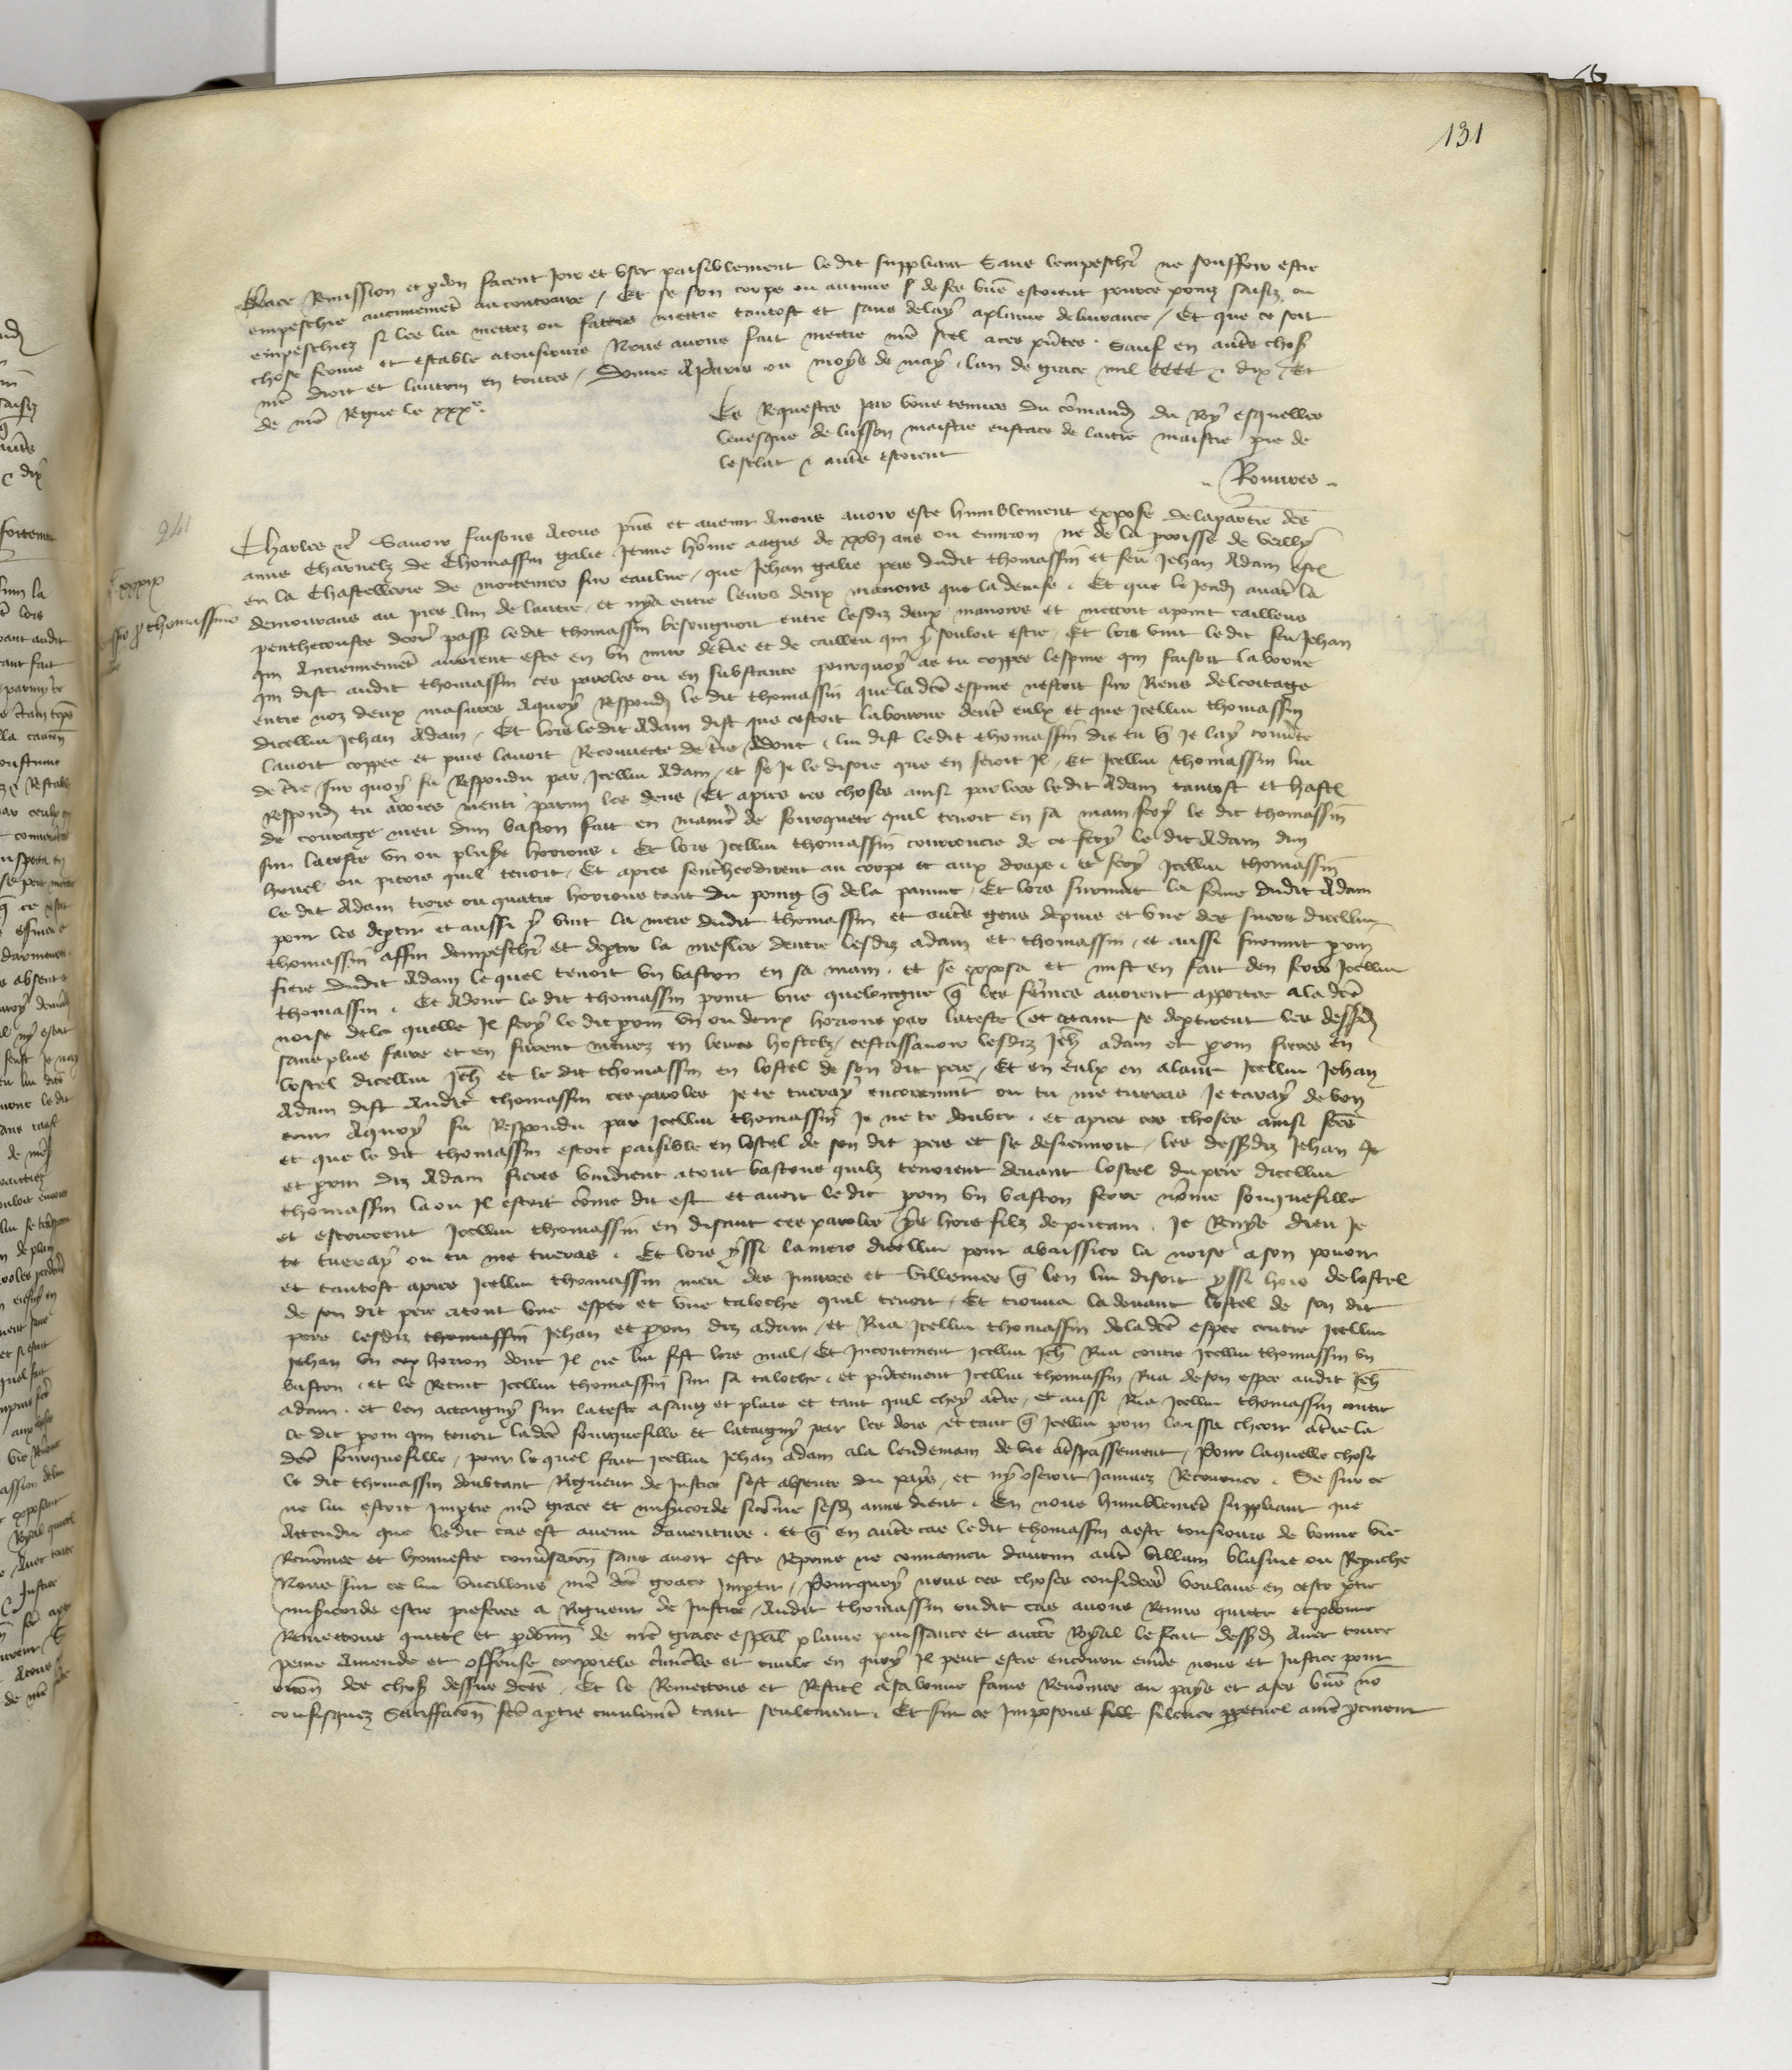 131
Grace Remission et pdon facent joir et user paisiblement ledit suppliant Sans lempeschier ne souffrir estre
empeschie aucunement au contraire / Et se son corps ou aucuns de ses biens estoient pource prins saisiz ou
empeschiez si les lui mettez ou faites mettre tantost et sans delay aplaine delivrance / Et que ce soit
chose ferme et estable atousiours Nous avons fait mettre nre scel aces presentes. Sauf en autres choses
nre droit et lautrui en toutes / Donne AParis ou moys de may lan de grace mil CCCC et dix Et
de nre Regne le xxxe.
Es Requestes par vous tenues du comand du Roy esquelles
levesque de lusson maistre eustace de laitre maistre pre de
lesclat et autres estoient
Rouvres
241
Charles etc Savoir faisons Atous presens et avenir Anous avoir este humblement expose delapartie des
amis Charnelz de Thomassin galie jeune homme aagie de xxvj ans ou environ ne de la parroisse de
en la Chastellerie de mortemer sur eaulne / que Jehan galie pere dudit thomassin et feu Jehan Adam
demourans au pres lun de lautre et nya entre leurs deux manoirs que la . Et que le jeudi avant la
penthecouste derrenier passe ledit thomassin besongnoit entre lesdiz deux manoirs et mettoit apoint cailleux
thomassino
qui Anciennement avoient este en un mur de terre et de cailleu qui y souloit estre / Et lors vint ledit feu Jehan
qui dist audit thomassin ces paroles ou en substance pourquoy as tu coppee lespine qui faisoit la borne
entre noz deux masures Aquoy Respondi le dit thomassin que ladicte espine nestoit sur Riens deleritage
dicellui Jehan Adam / Et lors ledit Adam dist que cestoit laborne dentre eulx et que Icellui thomassin
lavoit coppee et puis lavoit Recouverte de terre Adont lui dist ledit thomassin dis tu que Je lay couverte
de terre / sur quoy fu Respondu par Icellui Adam et se Je le disoie que en seroit Il / Et Icellui thomassin lui
Respondi tu avroies menti parmi les dens / Et apres ces choses ainsi parlees ledit Adam tantost et hastif
de courage meu dun baston fait en maniere de fourquete quil tenoit en sa main fery le dit thomassin
sur lateste un ou plusieurs horions Et lors Icellui thomassin courroucie de ce fery le dit Adam dun
houel ou picois quil tenoit / Et apres sentrherdirent au corps et aux draps et fery Icellui thomassin
le dit Adam trois ou quatre horions tant du poing que dela paume / Et lors survint la femme dudit Adam
pour les departir et aussi y vint la mere dudit thomassin et autres gens depuis et une des suers dicellui
thomassin affin dempeschier et departir la meslee dentre lesdiz adam et thomassin / et aussi survint prin
frere dudit Adam lequel tenoit un baston en sa main et se exposa et mist en fait den ferir Icellui
thomassin. Et Adont le dit thomassin print une quelongne que les femmes avoient apportee ala dicte
noise dela quelle Il fery le dit prin un ou deux horions par lateste / et atant se departirent les dessusdiz
sans plus faire et en furent menez en leurs hostelz / cestassavoir lesdiz Jeh adam et prin freres en
lostel dicellui Jeh et le dit thomassin en lostel de son dit pere / Et en eulx en alant Icellui Jehan
Adam dist Audit thomassin ces paroles je te tueray encoremuit ou tu me tueras Je taray de bon
tour Aquoy fu Respondu par Icellui thomassin Je ne te doubte et apres ces choses ainsi faites
et que le dit thomassin estoit paisible en lostel de son dit pere et se / les dessusdiz Jehan
et prin diz Adam freres vindrent atout bastons quilz tenoient devant lostel du pere dicellui
thomassin la ou Il estoit comme dit est et avoit ledit prin un baston ferre nomme fourquefille
et escrierent Icellui thomassin en disant ces paroles ys hors filz deputain. Je Reny dieu Je
te tueray ou tu me tueras. Et lors yssi lamere dicellui pour abaissier la noise ason povoir
et tantost apres Icellui thomassin meu des Injures et villenies que len lui disoit yssi hors de lostel
de son dit pere atout une espee et une taloche quil tenoit / Et trouva ladevant lostel de son dit
pere lesdiz thomassin Jehan et prin diz adam et Rua Icellui thomassin deladicte espee contre Icellui
Jehan un horion dont Il ne lui fist lors mal / Et Incontinent Icellui Jeh Rua contre Icellui thomassin un
baston et le Retint Icellui thomassin sur sa taloche et presentement Icellui thomassin Rua de son espee audit Jeh
adam et len attaigny sur lateste asang et plaie et tant quil chey aterre et aussi Rua Icellui thomassin contre
le dit prin qui tenoit ladicte fourquefille et lataigny par les dois et tant que Icellui prin laissa cheoir aterre la
dicte fourquefille / pour lequel fait Icellui Jehan Adam ala lendemain de vie atrespassement / Pour laquelle chose
le dit thomassin doubtant Rigueur de Justice sest absente du pays et ny oseroit Jamaiz Retourner. Se sur ce
ne lui estoit Impartie nre grace et misericorde sicomme sesdiz amis dient. En nous humblement suppliant que
Attendu que ledit cas est avenu daventure et que en autre cas ledit thomassin aeste tousiours de bonne vie
Renommee et honneste conversacion sans avoir este Reprins ne convaincu daucun autre villain blasme ou Reprouche
Nous sur ce lui vueillons nre dicte grace Impartir / Pourquoy nous ces choses considerees voulans en ceste partie
misericorde estre preferee a Rigueur de Justice / Audit thomassin oudit cas avons Remis quitte et pdonne
Remettons quittons et pdonnons de nre grace especial plaine puissance et auctorite Royal le fait dessusdit Avec toute
peine Amende et offense corporele criminele et civile en quoy Il peut estre encouru envers nous et Justice pour
occasion des choses dessus dictes. Et le Remettons et Restituons asa bonne fame Renommee au pays et ases biens non
confisquez Satiffacion faicte apartie civilement tant seulement. Et sur ce Imposons silence perpetuel anre procureur